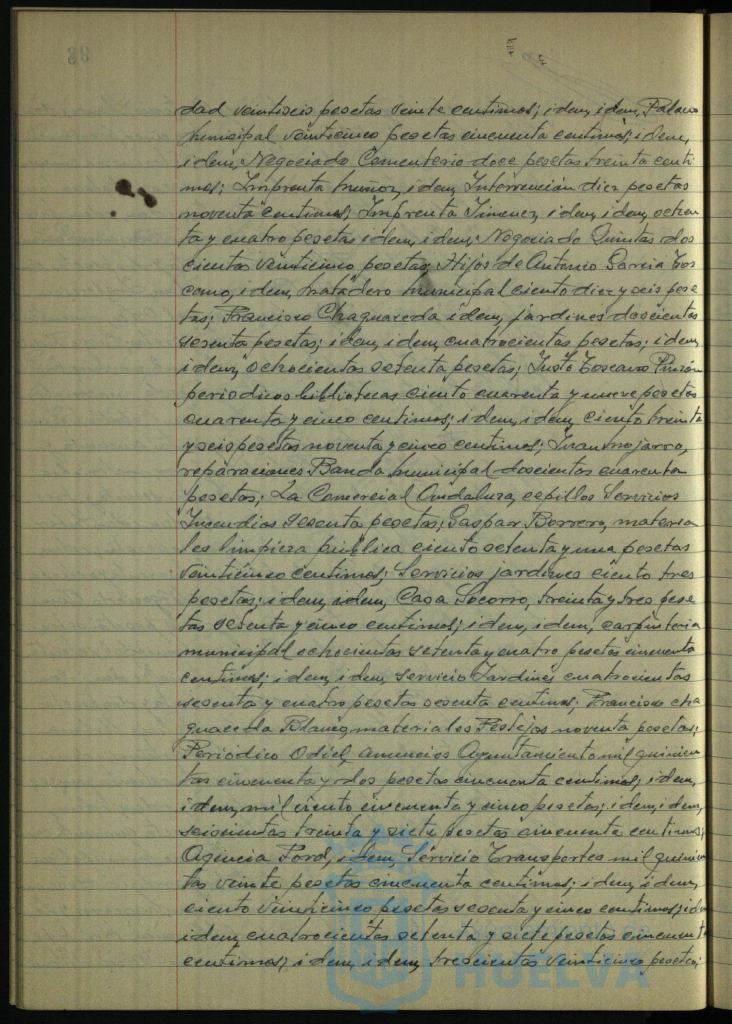 dad veintiseis pesetas veinte centimos; idem, idem, Palacio
municipal veinticinco pesetas cincuenta centimos; idem,
idem, Negociado Cementerio doce pesetas treinta centi
mos; Imprenta Muñoz, idem, Intervención diez pesetas
noventa centimos; Imprenta Jimenez, idem, idem, ochen
ta y cuatro pesetas idem, idem, Negociado Quintas dos
cientas veinticinco pesetas; Hijos de Antonio Garcia Tos
cano, idem, matadero municipal ciento diez y seis pese
tas; Francisco Chaguaceda idem, jardines doscientas
sesenta pesetas; idem, idem, cuatrocientas pesetas; idem,
idem, ochocientas setenta pesetas; Justo Toscano Pinzón
periodicos bibliotecas ciento cuarenta y nueve pesetas
cuarenta y cinco centimos; idem, idem, ciento treinta
y seis pesetas noventa y cinco centimos; Juan
reparaciones Banda municipal doscientas cuarenta
pesetas; La Comercial Andaluza, cepillos Servicios
Incendios sesenta pesetas; Gaspar Borrero, materia
les limpieza pública ciento setenta y una pesetas
veinticinco centimos; Servicios jardines ciento tres
pesetas; idem, idem, Casa Socorro, treinta y tres pese
tas sesenta y cinco centimos; idem, idem, carpinteria
municipal ochocientas setenta y cuatro pesetas cincuenta
centimos; idem, idem, servicio Jardines cuatrocientas
sesenta y cuatro pesetas sesenta centimos; Francisco Cha
guaceda Blanco, materiales Festejos noventa pesetas;
Periódico Odiel, anuncios Ayuntamiento mil quinien
tas cincuenta y dos pesetas cincuenta centimos; idem,
idem, mil ciento cincuenta y cinco pesetas; idem, idem,
seiscientas treinta y siete pesetas cincuenta centimos;
Agencia Ford, idem, Servicio Transportes mil quinien
tas veinte pesetas cincuenta centimos; idem, idem,
ciento veinticinco pesetas sesenta y cinco centimos; idem
idem, cuatrocientas setenta y siete pesetas cincuenta
centimos; idem, idem, trescientas veinticinco pesetas;
HUELVA